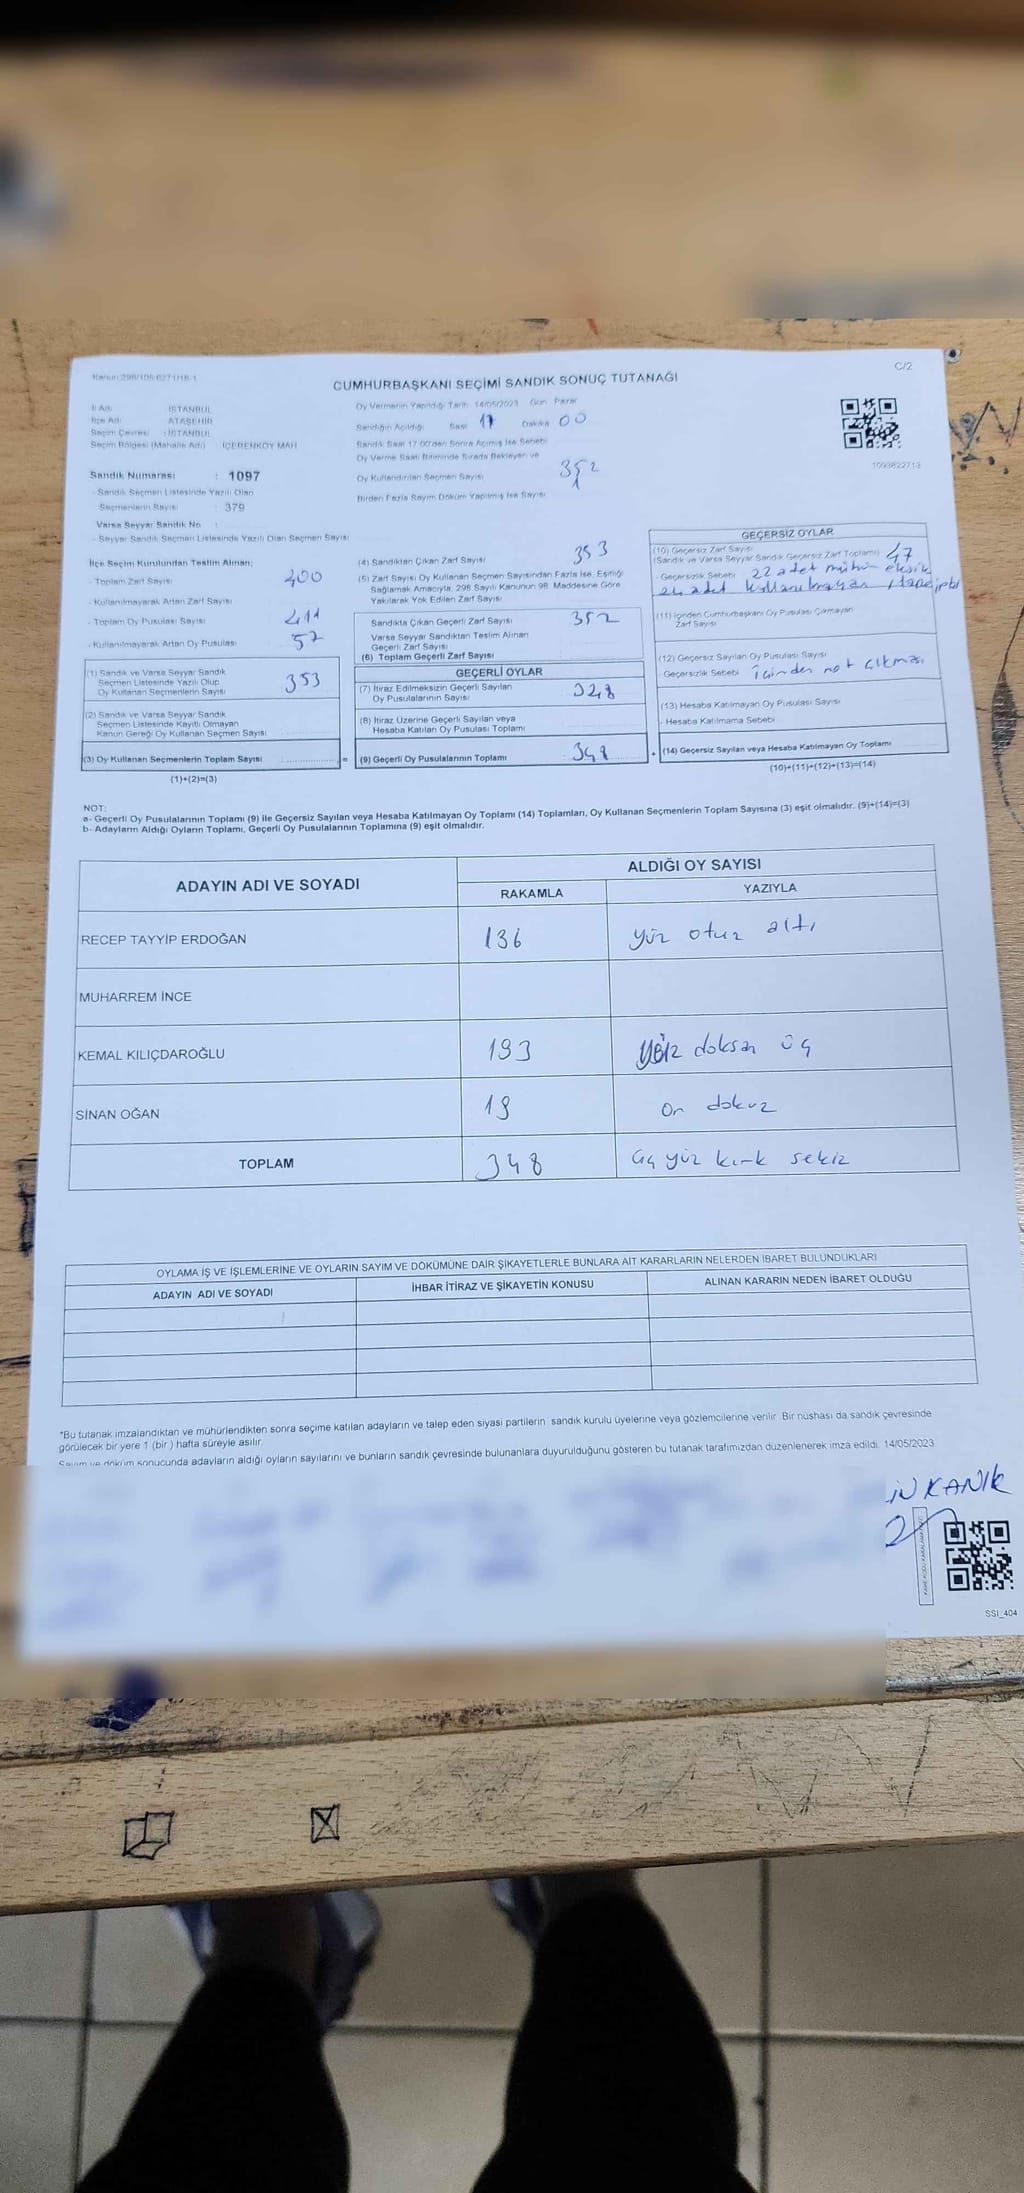 Kanun 298/105 6271/18-1
C/2
CUMHURBAŞKANI SEÇİMİ SANDIK SONUÇ TUTANAĞI
İl Adı : İSTANBUL
İlçe Adı : ATAŞEHİR
Seçim Çevresi : İSTANBUL
Seçim Bölgesi (Mahalle Adı) : İÇERENKÖY MAH
Sandık Numarası : 1097
- Sandık Seçmen Listesinde Yazılı Olan
Seçmenlerin Sayısı : 379
Varsa Seyyar Sandık No :
- Seyyar Sandık Seçmen Listesinde Yazılı Olan Seçmen Sayısı
Oy Vermenin Yapıldığı Tarih 14/05/2023 Gün Pazar
Sandığın Açıldığı Saat 17 Dakika 00
Sandık Saat 17.00'den Sonra Açılmış İse Sebebi
Oy Verme Saati Bitiminde Sırada Bekleyen ve
Oy Kullandırılan Seçmen Sayısı 352
Birden Fazla Sayım Döküm Yapılmış İse Sayısı 1
1093822713
İlçe Seçim Kurulundan Teslim Alınan;
- Toplam Zarf Sayısı 400
- Kullanılmayarak Artan Zarf Sayısı
- Toplam Oy Pusulası Sayısı 411
- Kullanılmayarak Artan Oy Pusulası 57
(1) Sandık ve Varsa Seyyar Sandık
Seçmen Listesinde Yazılı Olup
Oy Kullanan Seçmenlerin Sayısı 353
(2) Sandık ve Varsa Seyyar Sandık
Seçmen Listesinde Kayıtlı Olmayan
Kanun Gereği Oy Kullanan Seçmen Sayısı
(3) Oy Kullanan Seçmenlerin Toplam Sayısı =
(1)+(2)=(3)
(4) Sandıktan Çıkan Zarf Sayısı 353
(5) Zarf Sayısı Oy Kullanan Seçmen Sayısından Fazla İse, Eşitliği
Sağlamak Amacıyla, 298 Sayılı Kanunun 98. Maddesine Göre
Yakılarak Yok Edilen Zarf Sayısı
Sandıkta Çıkan Geçerli Zarf Sayısı 352
Varsa Seyyar Sandıktan Teslim Alınan
Geçerli Zarf Sayısı
(6) Toplam Geçerli Zarf Sayısı
GEÇERLİ OYLAR
(7) İtiraz Edilmeksizin Geçerli Sayılan
Oy Pusulalarının Sayısı 348
(8) İtiraz Üzerine Geçerli Sayılan veya
Hesaba Katılan Oy Pusulası Toplamı
(9) Geçerli Oy Pusulalarının Toplamı 348 +
GEÇERSİZ OYLAR
(10) Geçersiz Zarf Sayısı
(Sandık ve Varsa Seyyar Sandık Geçersiz Zarf Toplamı) 47
- Geçersizlik Sebebi 22 adet mühür eksik
24 adet kullanılmayan 1 tane iptal
(11) İçinden Cumhurbaşkanı Oy Pusulası Çıkmayan
Zarf Sayısı
(12) Geçersiz Sayılan Oy Pusulası Sayısı
- Geçersizlik Sebebi İçinden not çıkması
(13) Hesaba Katılmayan Oy Pusulası Sayısı
- Hesaba Katılmama Sebebi
(14) Geçersiz Sayılan veya Hesaba Katılmayan Oy Toplamı
(10)+(11)+(12)+(13)=(14)
NOT:
a- Geçerli Oy Pusulalarının Toplamı (9) ile Geçersiz Sayılan veya Hesaba Katılmayan Oy Toplamı (14) Toplamları, Oy Kullanan Seçmenlerin Toplam Sayısına (3) eşit olmalıdır. (9)+(14)=(3)
b- Adayların Aldığı Oyların Toplamı, Geçerli Oy Pusulalarının Toplamına (9) eşit olmalıdır.
ADAYIN ADI VE SOYADI
ALDIĞI OY SAYISI
RAKAMLA YAZIYLA
RECEP TAYYİP ERDOĞAN 136 yüz otuz altı
MUHARREM İNCE
KEMAL KILIÇDAROĞLU 193 yüz doksan üç
SİNAN OĞAN 19 on dokuz
TOPLAM 348 üç yüz kırk sekiz
OYLAMA İŞ VE İŞLEMLERİNE VE OYLARIN SAYIM VE DÖKÜMÜNE DAİR ŞİKAYETLERLE BUNLARA AİT KARARLARIN NELERDEN İBARET BULUNDUKLARI
ADAYIN ADI VE SOYADI İHBAR İTİRAZ VE ŞİKAYETİN KONUSU ALINAN KARARIN NEDEN İBARET OLDUĞU
*Bu tutanak imzalandıktan ve mühürlendikten sonra seçime katılan adayların ve talep eden siyasi partilerin sandık kurulu üyelerine veya gözlemcilerine verilir. Bir nüshası da sandık çevresinde
görülecek bir yere 1 (bir ) hafta süreyle asılır.
Sayım ve döküm sonucunda adayların aldığı oyların sayılarını ve bunların sandık çevresinde bulunanlara duyurulduğunu gösteren bu tutanak tarafımızdan düzenlenerek imza edildi. 14/05/2023
İN KANIK
SSI_404